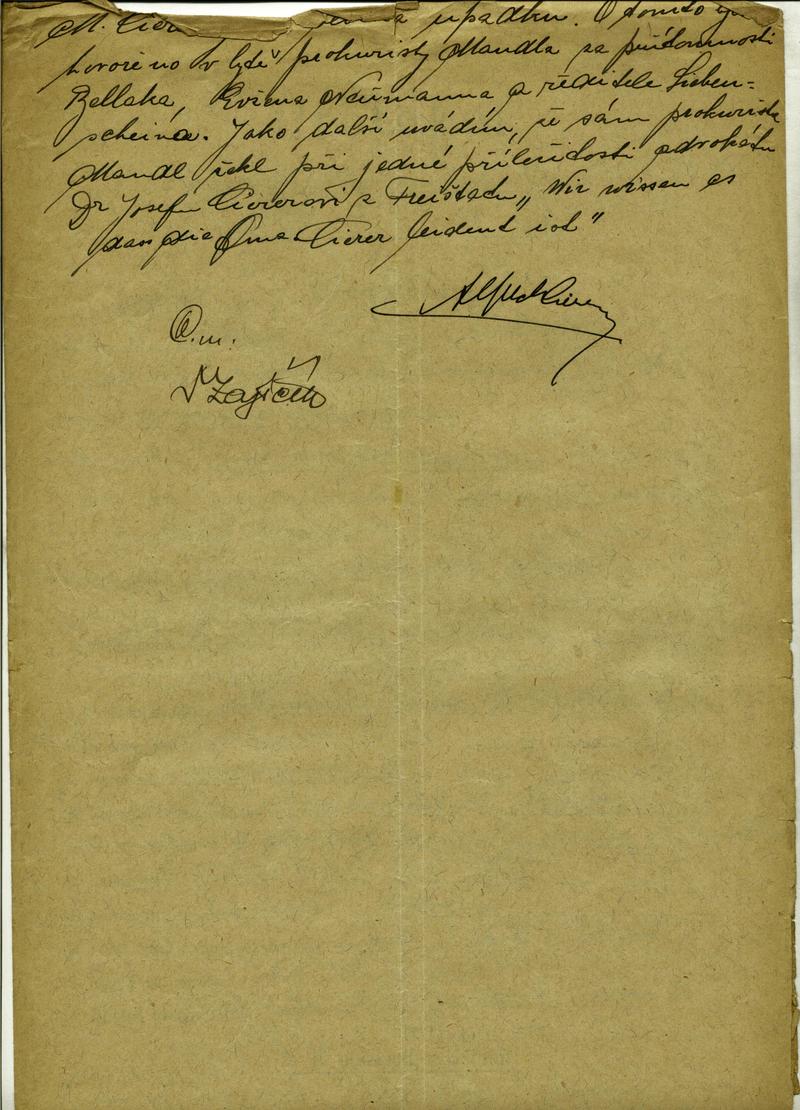 M. úpadku. O tomto
hovořeno v bytě prokuristy Mandla za přítomnosti
Bellaka, Evžena Neumanna a ředitele Lieben-
scheina. Jako další uvádím, že sám prokurista
Mandl řekl při jedné příležitosti advokátu
Dr Josefu Ciererovi z Freištadu „Wir wissen es
dass die Oma Cierer leident ist"
Alfred Cierer
O.m.
Zajíček